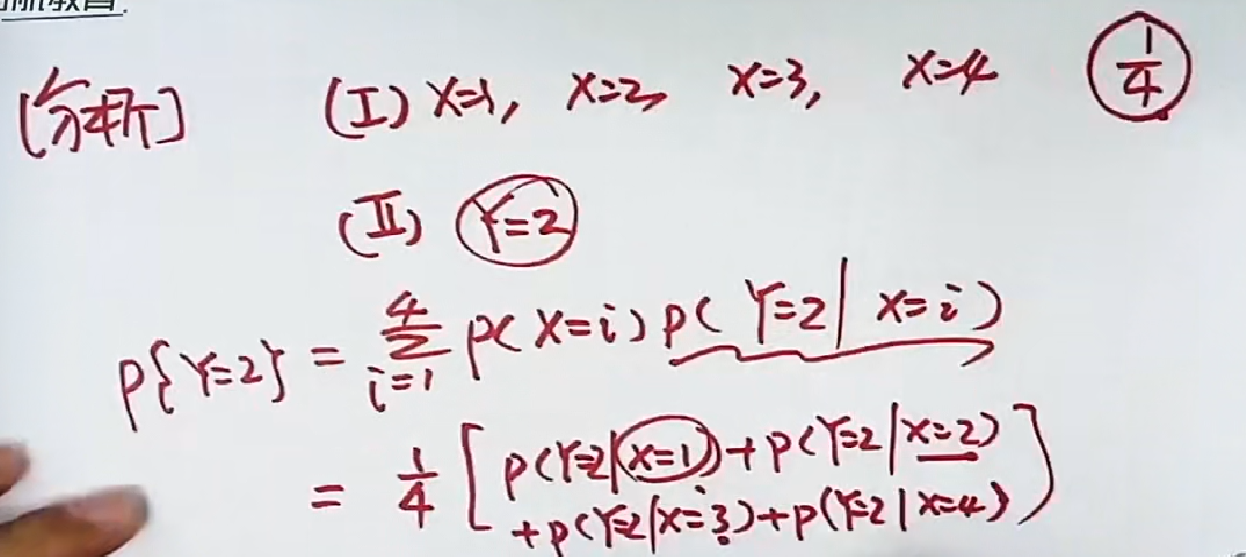 [分析] (I) X=1, X=2, X=3, X=4 1/4
(II) Y=2
P{Y=2} = ∑_{i=1}^{4} P(X=i) P(Y=2|X=i)
= 1/4 [P(Y=2|X=1)+P(Y=2|X=2)
+P(Y=2|X=3)+P(Y=2|X=4)]